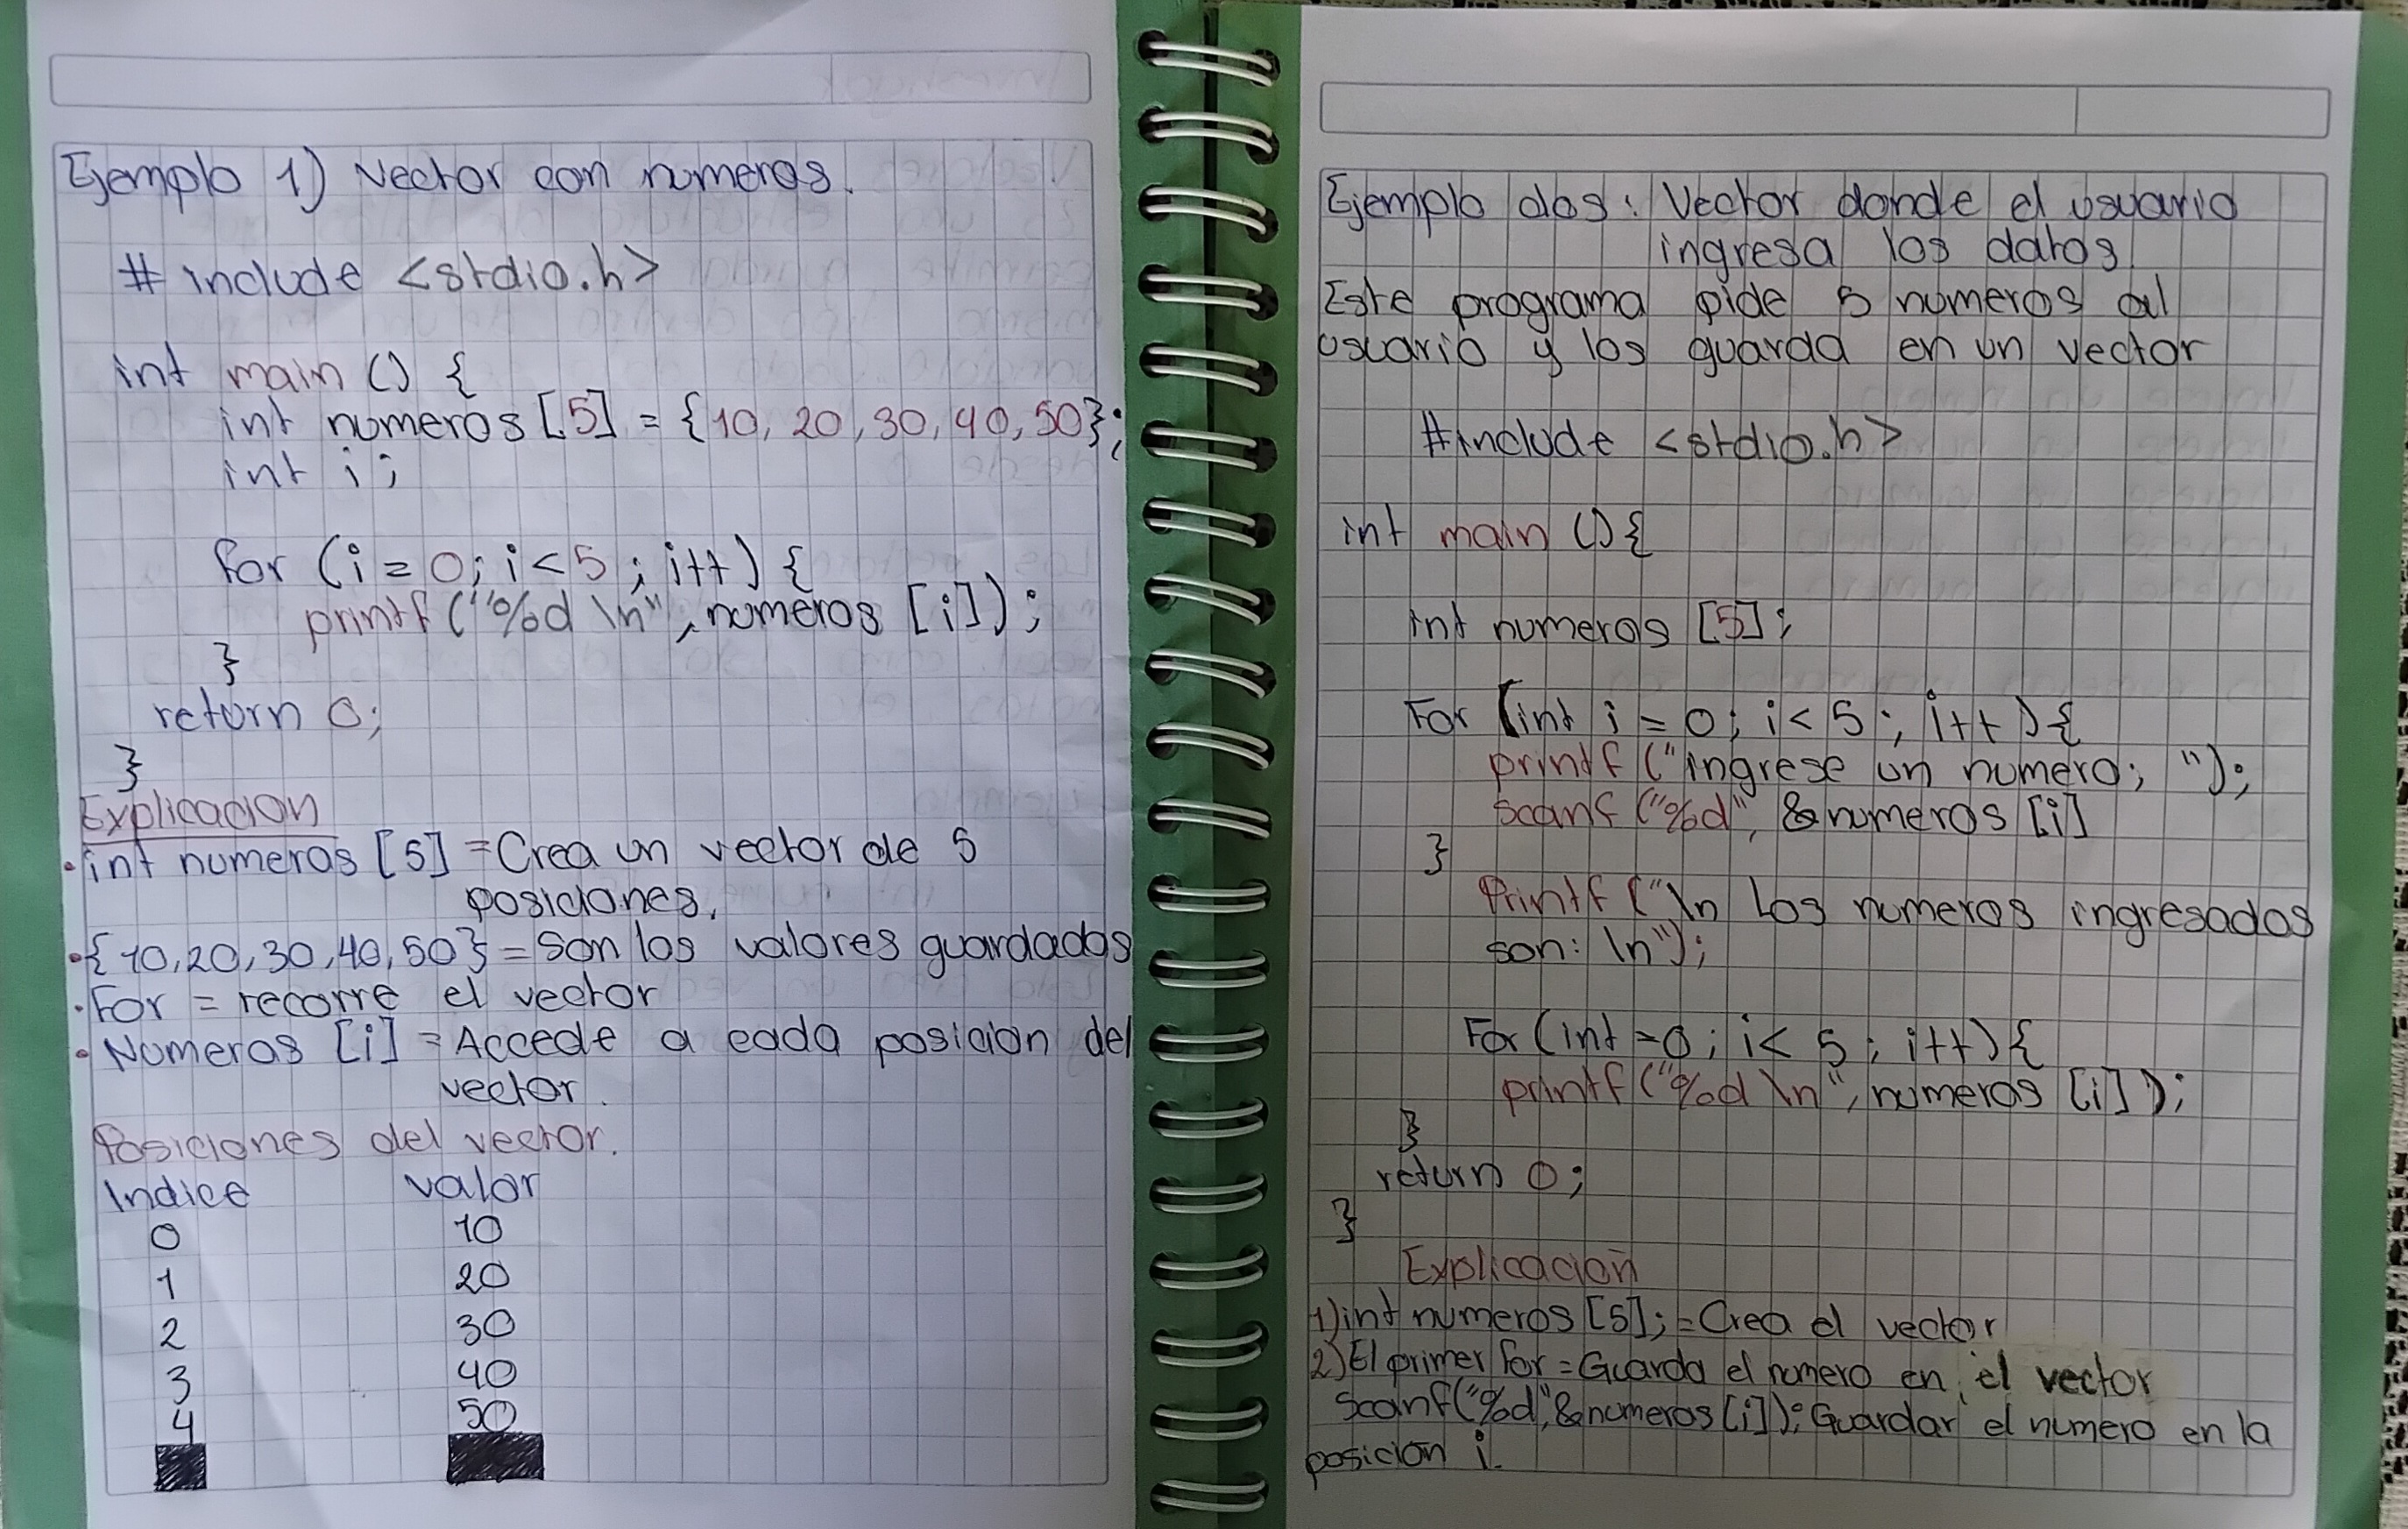 Ejemplo 1) Vector con numeros.
# include <stdio.h>
int main () {
int numeros [5] = {10, 20, 30, 40, 50};
int i;
for (i = 0; i < 5 ; i++) {
printf ("%d \n", numeros [i]);
}
return 0;
}
Explicacion
• int numeros [5] = Crea un vector de 5
posiciones.
• {10, 20, 30, 40, 50} = Son los valores guardados
• For = recorre el vector
• Numeros [i] = Accede a cada posicion del
vector.
Posiciones del vector.
Indice valor
0 10
1 20
2 30
3 40
4 50
Ejemplo dos: Vector donde el usuario
ingresa los datos.
Este programa pide 5 numeros al
usuario y los guarda en un vector
#include <stdio.h>
int main () {
int numeros [5];
For (int i = 0; i < 5 ; i++) {
printf ("ingrese un numero; ");
Scanf ("%d", &numeros [i]
}
Printf ("\n Los numeros ingresados
son: \n");
For (int = 0; i < 5 ; i++) {
printf ("%d \n", numeros [i]);
}
return 0;
}
Explicacion
1) int numeros [5]; = Crea el vector
2) El primer for = Guarda el numero en el vector
Scanf("%d", &numeros [i]); Guardar el numero en la
posicion i.